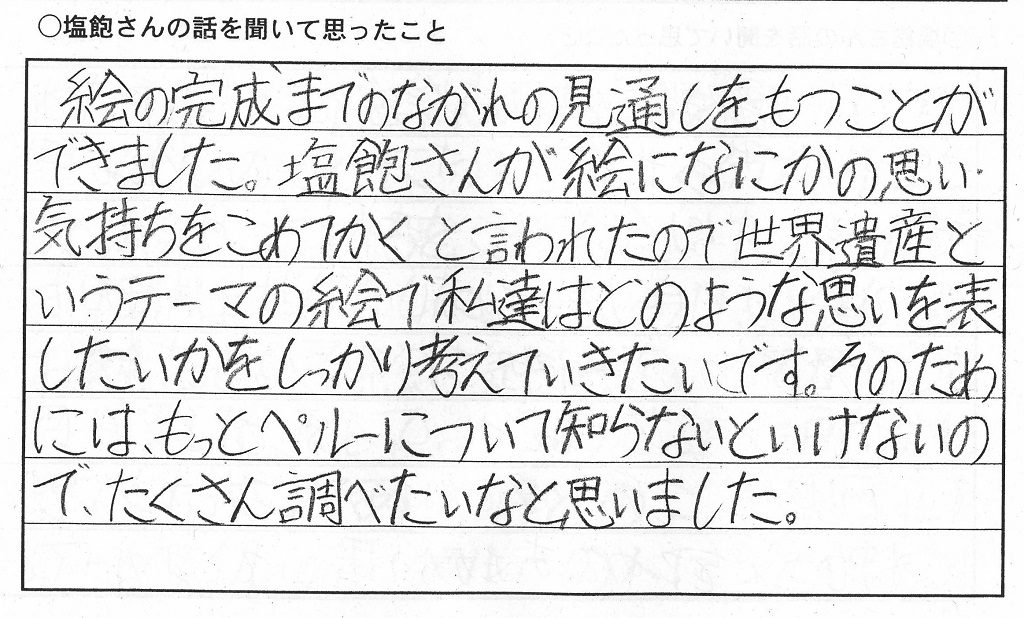 ○塩飽さんの話を聞いて思ったこと
絵の完成までのながれの見通しをもつことが
できました。塩飽さんが絵になにかの思い・
気持ちをこめてかくと言われたので世界遺産と
いうテーマの絵で私達はどのような思いを表
したいかをしっかり考えていきたいです。そのため
には、もっとペルーについて知らないといけないの
で、たくさん調べたいなと思いました。